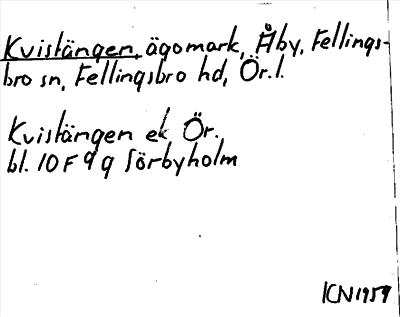 Kvistängen, ägomark, Åby, Fellings-
bro sn, Fellingsbro hd, Ör.l.
Kvistängen ek Ör.
bl. 10 F 9 g Sörbyholm
KN 1959